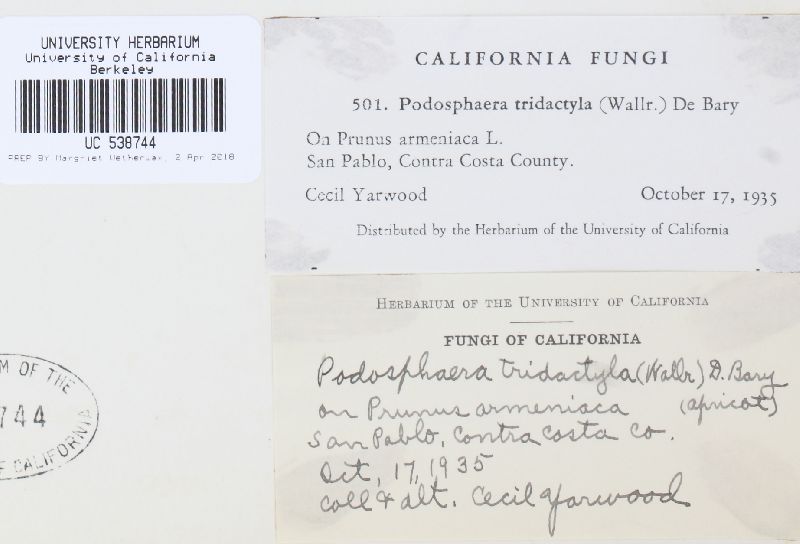 UNIVERSITY HERBARIUM
University of California
Berkeley
UC 538744
PREP BY Margriet Wetherwax, 2 Apr 2018
CALIFORNIA FUNGI
501. Podosphaera tridactyla (Wallr.) De Bary
On Prunus armeniaca L.
San Pablo, Contra Costa County.
Cecil Yarwood October 17, 1935
Distributed by the Herbarium of the University of California
HERBARIUM OF THE UNIVERSITY OF CALIFORNIA
FUNGI OF CALIFORNIA
Podosphaera tridactyla (Wallr) D. Bary
on Prunus armeniaca (apricot)
San Pablo, Contra Costa Co.
Oct, 17, 1935
Coll & alt. Cecil Yarwood
M OF THE
744
OF CALIFORNIA